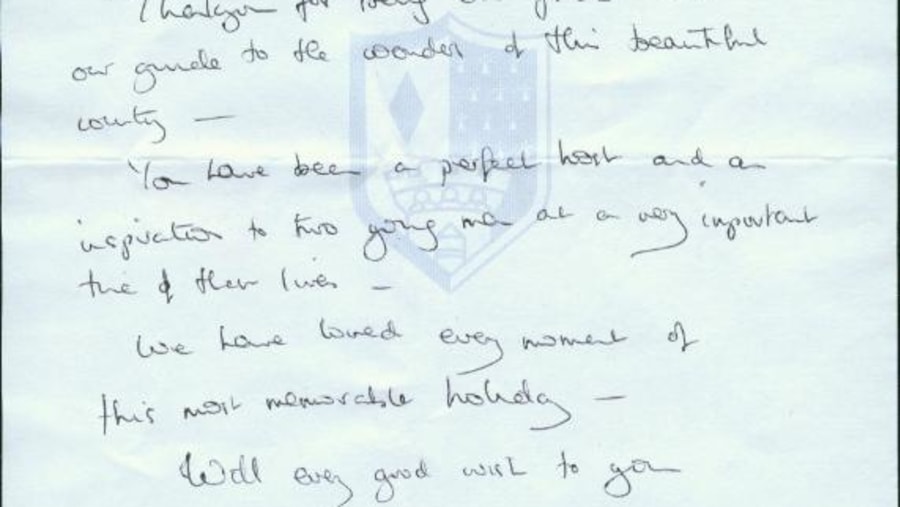 Thankyou for being our
our guide to the wonders of this beautiful
country —
You have been a perfect host and an
inspiration to two young men at a very important
time of their lives —
We have loved every moment of
this most memorable holiday —
With every good wish to you